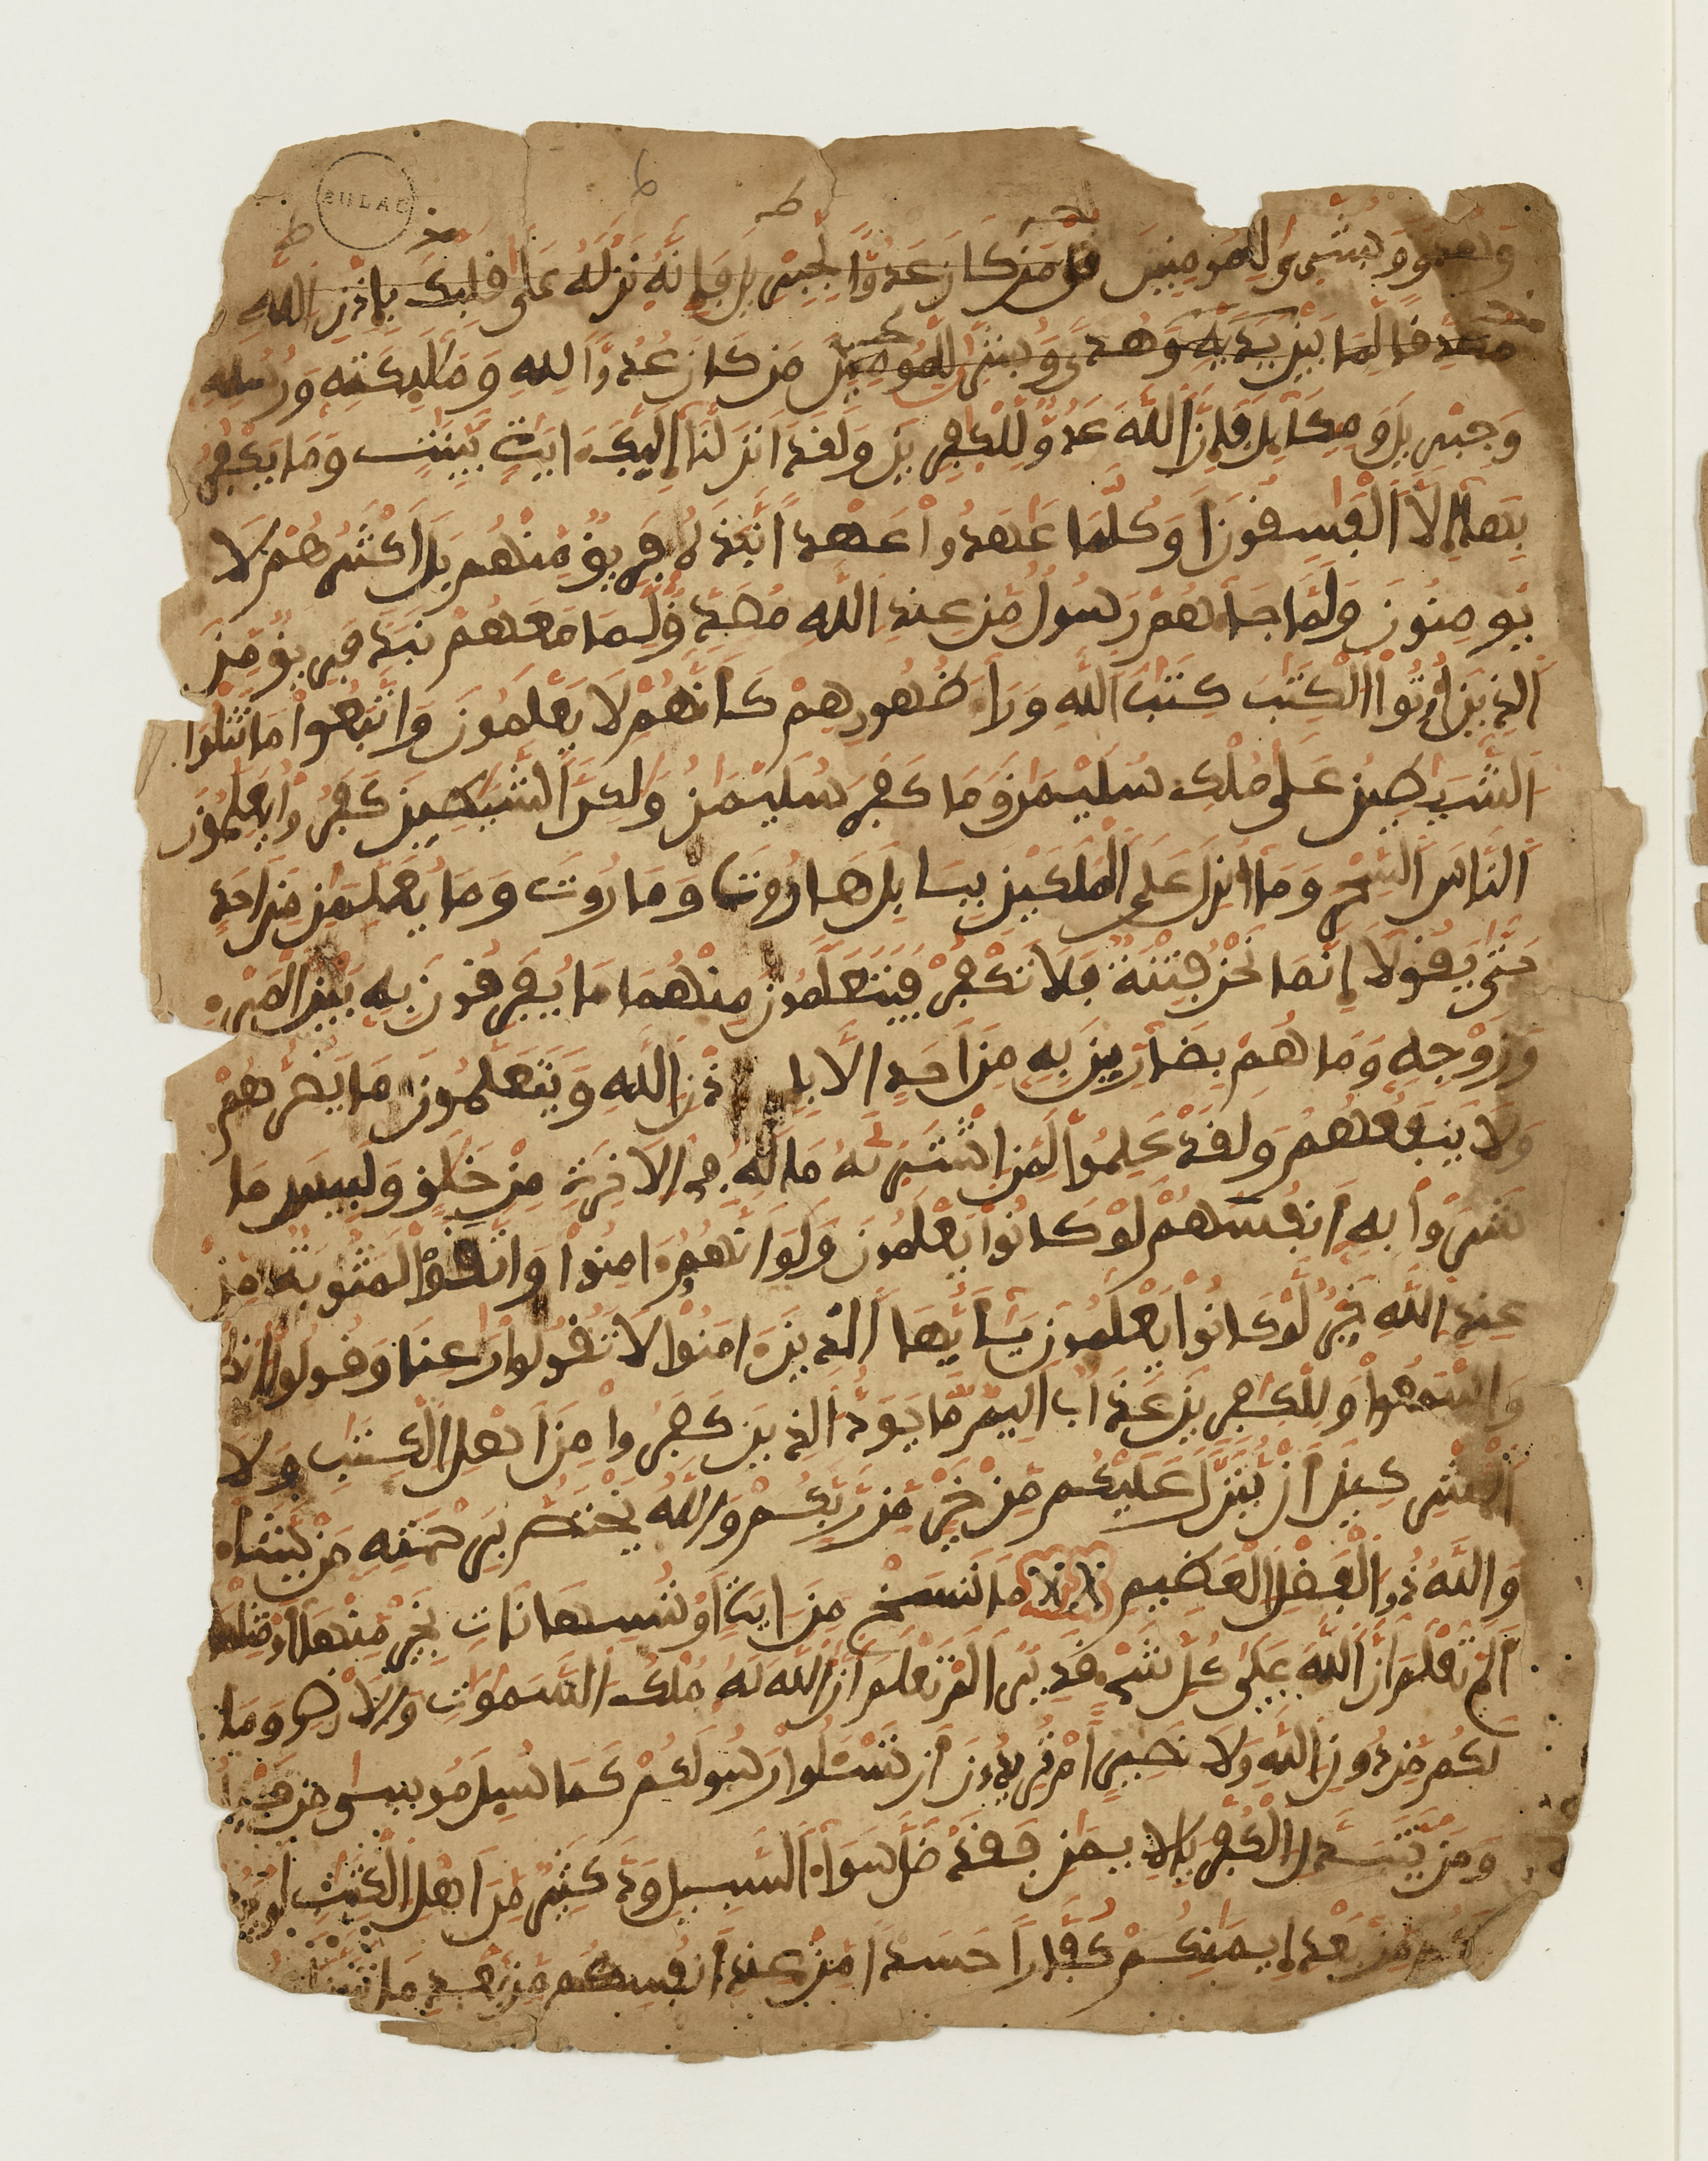 وهدى وبشرى للمومنين قل من كان عدوا لجبريل فإنه نزله على قلبك بإذن الله
مصدقا لما بين يديه وهدى وبشرى للمومنين من كان عدوا لله ومليكته ورسله
وجبريل وميكايل فإن الله عدو للكفرين ولقد انزلنا إليك ءايت بينت وما يكفر
بها إلا الفسقون أوكلما عهدوا عهدا نبذه فريق منهم بل اكثرهم لا
يومنون ولما جاءهم رسول من عند الله مصدق لما معهم نبذ فريق من
الذين أوتوا الكتب كتب الله وراء ظهورهم كأنهم لا يعلمون واتبعوا ما تتلوا
الشيطين على ملك سليمن وما كفر سليمن ولكن الشيطين كفروا يعلمون
الناس السحر وما أنزل على الملكين ببابل هاروت وماروت وما يعلمن من احد
حتى يقولا إنما نحن فتنة فلا تكفر فيتعلمون منهما ما يفرقون به بين المرء
وزوجه وما هم بضارين به من احد الا بإذن الله ويتعلمون ما يضرهم
ولا ينفعهم ولقد علموا لمن اشتريه ما له في الاخرة من خلق ولبيس ما
شروا به أنفسهم لو كانوا يعلمون ولو انهم ءامنوا واتقوا لمثوبة من
عند الله خير لو كانوا يعلمون يأيها الذين ءامنوا لا تقولوا رعنا وقولوا انظرنا
واسمعوا وللكفرين عذاب اليم ما يود الذين كفروا من اهل الكتب ولا
المشركين أن ينزل عليكم من خير من ربكم والله يختص برحمته من يشاء
والله ذو الفضل العظيم ما ننسخ من ءاية أو ننسها نات بخير منها أو مثلها
ألم تعلم أن الله على كل شيء قدير ألم تعلم أن الله له ملك السموت والارض وما
لكم من دون الله من ولي ولا نصير أم تريدون أن تسئلوا رسولكم كما سيل موسى من قبل
ومن يتبدل الكفر بالايمن فقد ضل سواء السبيل ود كثير من اهل الكتب لو يردونكم
من بعد إيمنكم كفارا حسدا من عند أنفسهم من بعد ما تبين